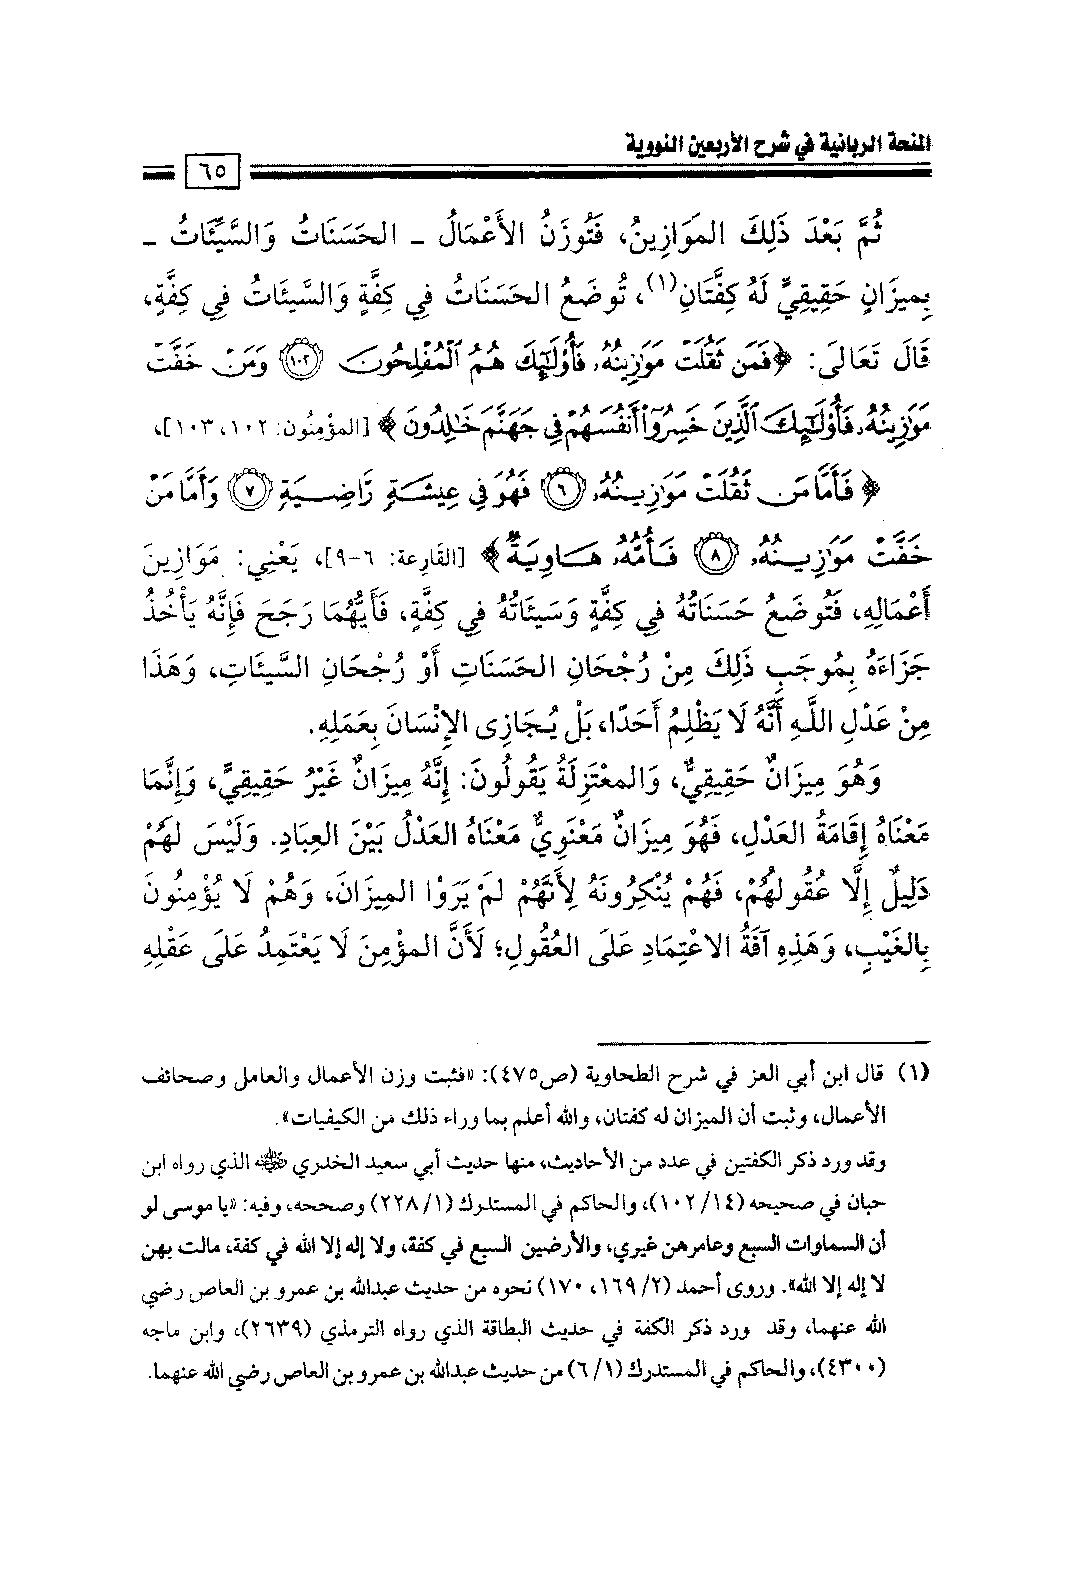 المنحة الربانية في شرح الأربعين النووية
٦٥
ثُمَّ بَعْدَ ذَلِكَ المَوَازِينُ، فَتُوزَنُ الأَعْمَالُ ـ الحَسَنَاتُ وَالسَّيِّئَاتُ ـ
بِمِيزَانٍ حَقِيقِيٍّ لَهُ كِفَّتَانِ(١)، تُوضَعُ الحَسَنَاتُ فِي كِفَّةٍ وَالسَّيِّئَاتُ فِي كِفَّةٍ،
قَالَ تَعَالَى: ﴿فَمَن ثَقُلَتْ مَوَٰزِينُهُۥ فَأُو۟لَٰٓئِكَ هُمُ ٱلْمُفْلِحُونَ ١٠٢ وَمَنْ خَفَّتْ
مَوَٰزِينُهُۥ فَأُو۟لَٰٓئِكَ ٱلَّذِينَ خَسِرُوٓا۟ أَنفُسَهُمْ فِى جَهَنَّمَ خَٰلِدُونَ﴾ [المؤمِنُون: ١٠٢، ١٠٣]،
﴿فَأَمَّا مَن ثَقُلَتْ مَوَٰزِينُهُۥ ٦ فَهُوَ فِى عِيشَةٍ رَّاضِيَةٍ ٧ وَأَمَّا مَنْ
خَفَّتْ مَوَٰزِينُهُۥ ٨ فَأُمُّهُۥ هَاوِيَةٌ﴾ [القَارِعة: ٦-٩]، يَعْنِي: مَوَازِينَ
أَعْمَالِهِ، فَتُوضَعُ حَسَنَاتُهُ فِي كِفَّةٍ وَسَيِّئَاتُهُ فِي كِفَّةٍ، فَأَيُّهُمَا رَجَحَ فَإِنَّهُ يَأْخُذُ
جَزَاءَهُ بِمُوجَبِ ذَلِكَ مِنْ رُجْحَانِ الحَسَنَاتِ أَوْ رُجْحَانِ السَّيِّئَاتِ، وَهَذَا
مِنْ عَدْلِ اللَّهِ أَنَّهُ لَا يَظْلِمُ أَحَدًا، بَلْ يُجَازِى الإِنْسَانَ بِعَمَلِهِ.
وَهُوَ مِيزَانٌ حَقِيقِيٌّ، وَالمعْتَزِلَةُ يَقُولُونَ: إِنَّهُ مِيزَانٌ غَيْرُ حَقِيقِيٍّ، وَإِنَّمَا
مَعْنَاهُ إِقَامَةُ العَدْلِ، فَهُوَ مِيزَانٌ مَعْنَوِيٌّ مَعْنَاهُ العَدْلُ بَيْنَ العِبَادِ. وَلَيْسَ لَهُمْ
دَلِيلٌ إِلَّا عُقُولهُمْ، فَهُمْ يُنْكِرُونَهُ لِأَنَّهُمْ لَمْ يَرَوْا المِيزَانَ، وَهُمْ لَا يُؤْمِنُونَ
بِالغَيْبِ، وَهَذِهِ آفَةُ الاعْتِمَادِ عَلَى العُقُولِ؛ لَأَنَّ المؤْمِنَ لَا يَعْتَمِدُ عَلَى عَقْلِهِ
(١) قال ابن أبي العز في شرح الطحاوية (ص٤٧٥): «فثبت وزن الأعمال والعامل وصحائف
الأعمال، وثبت أن الميزان له كفتان، والله أعلم بما وراء ذلك من الكيفيات».
وقد ورد ذكر الكفتين في عدد من الأحاديث، منها حديث أبي سعيد الخدري رضي الله عنه الذي رواه ابن
حبان في صحيحه (١٤/ ١٠٢)، والحاكم في المستدرك (١/ ٢٢٨) وصححه، وفيه: «يا موسى لو
أن السماوات السبع وعامرهن غيري، والأرضين السبع في كفة، ولا إله إلا الله في كفة، مالت بهن
لا إله إلا الله». وروى أحمد (٢/ ١٦٩، ١٧٠) نحوه من حديث عبدالله بن عمرو بن العاص رضي
الله عنهما، وقد ورد ذكر الكفة في حديث البطاقة الذي رواه الترمذي (٢٦٣٩)، وابن ماجه
(٤٣٠٠)، والحاكم في المستدرك (١/ ٦) من حديث عبدالله بن عمرو بن العاص رضي الله عنهما.